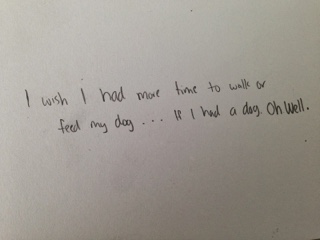 I wish I had more time to walk or
feed my dog . . . If I had a dog. Oh Well.